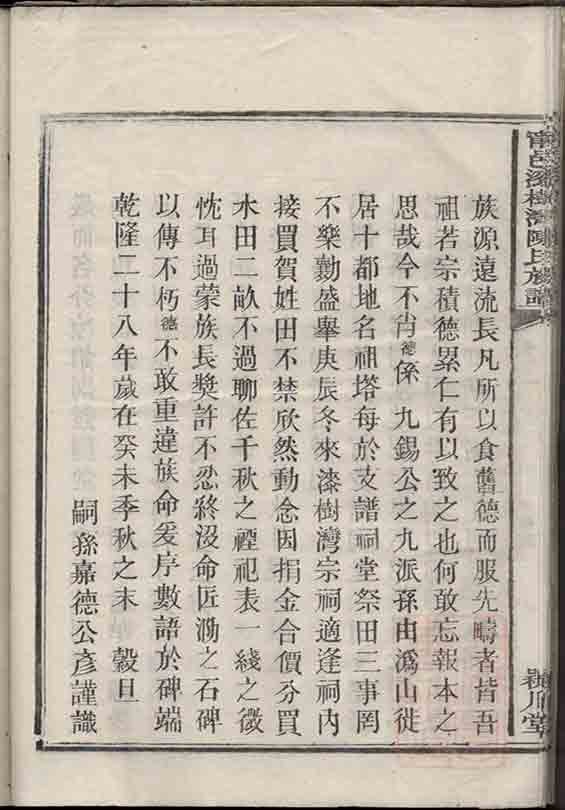 甯邑漆樹灣陳氏族譜
潁川堂
族源遠流長凡所以食舊德而服先疇者皆吾
祖若宗積德累仁有以致之也何敢忘報本之
思哉今不肖德係 九錫公之九派孫由溈山徙
居十都地名祖塔每於支譜祠堂祭田三事罔
不樂勷盛舉庚辰冬來漆樹灣宗祠適逢祠内
接買賀姓田不禁欣然動念因捐金合價分買
水田二畝不過聊佐千秋之禋祀表一綫之微
忱耳過蒙族長奬許不忍終沒命匠泐之石碑
以傳不朽德不敢重違族命爰序數語於碑端
乾隆二十八年歲在癸未季秋之末 穀旦
嗣孫嘉德公彥謹識